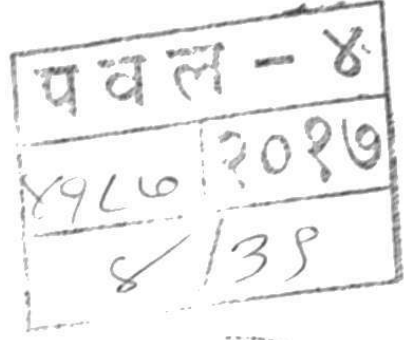 पवल - ४
४१८७ २०१७
४/३९